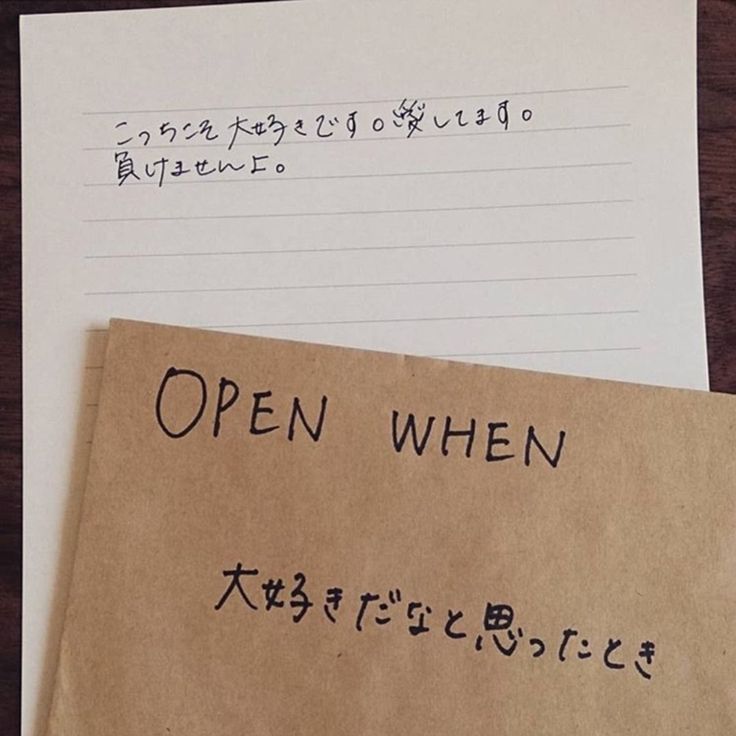 こっちこそ大好きです。愛してます。
負けませんよ。
OPEN WHEN
大好きだなと思ったとき